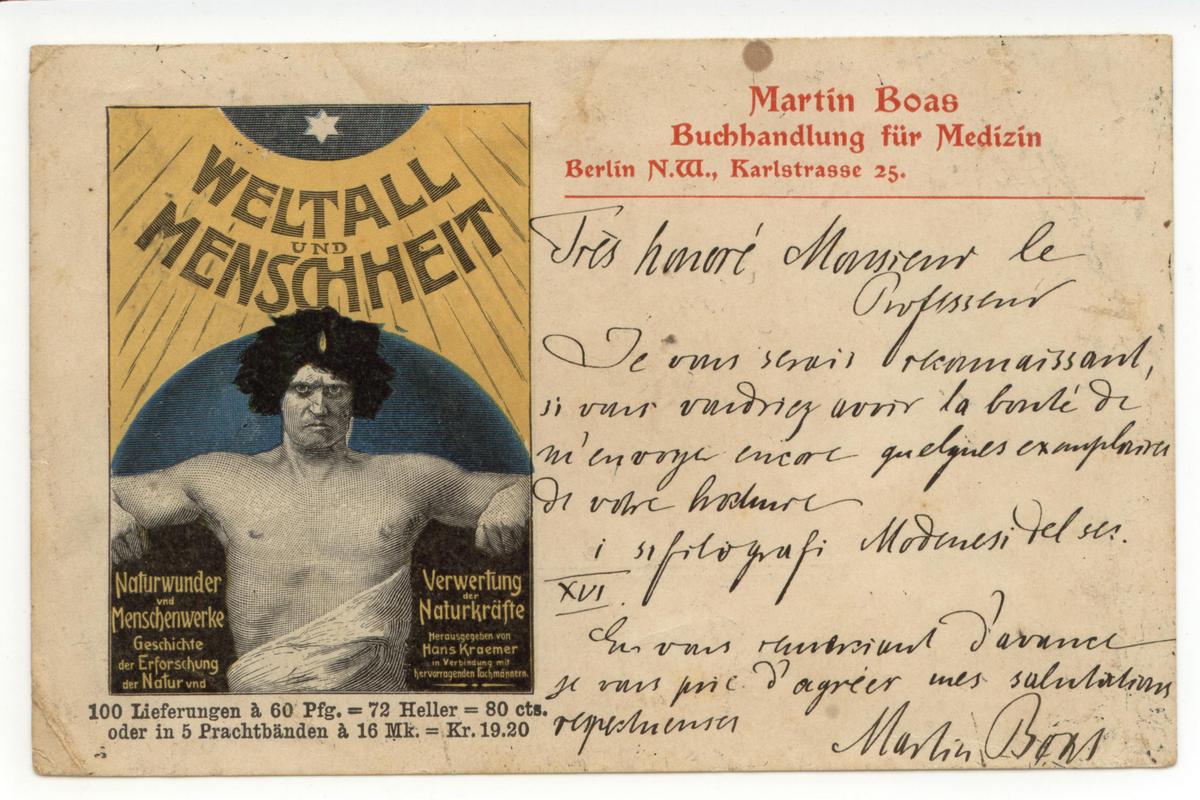 WELTALL
UND
MENSCHHEIT
Naturwunder
und
Menschenwerke
Geschichte
der Erforschung
der Natur und
Verwertung
der
Naturkräfte
Herausgegeben von
Hans Kraemer
in Verbindung mit
hervorragenden Fachmännern.
100 Lieferungen à 60 Pfg. = 72 Heller = 80 cts.
oder in 5 Prachtbänden à 16 Mk. = Kr. 19.20
Martin Boas
Buchhandlung für Medizin
Berlin N.W., Karlstrasse 25.
Très honoré Monsieur le
Professeur
Je vous serais reconnaissant,
si vous voudriez avoir la bonté de
m'envoyer encore quelques exemplaires
de votre brochure
i sifilografi Modenesi del sec.
XVI.
En vous remerciant d'avance
je vous prie d'agréer mes salutations
respectueuses
Martin Boas